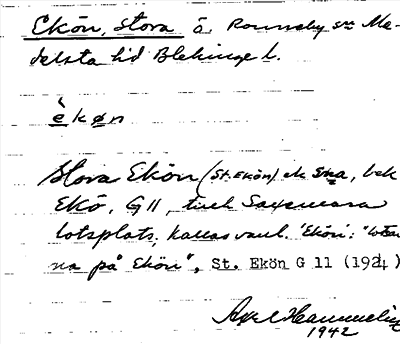 Ekön, Stora ö, Ronneby sn Me-
delsta hd Blekinge l.
èkøn
Stora Ekön (St. Ekön) ek sna, bek
Ekö, G 11, till Saxemara
lotsplats; kallas vanl. 'Ekön': "lotsar-
na på Ekön", St. Ekön G 11 (1924)
Axel Hammelin
1942